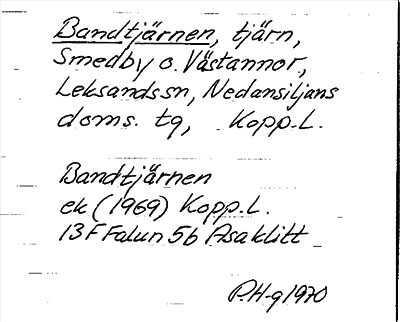 Bandtjärnen, tjärn,
Smedby o. Västannor,
Leksands sn, Nedansiljans
doms. tg, Kopp. L.
Bandtjärnen
ek (1969) Kopp. L.
13 F Falun 5b Åsaklitt
P.H-g 1970